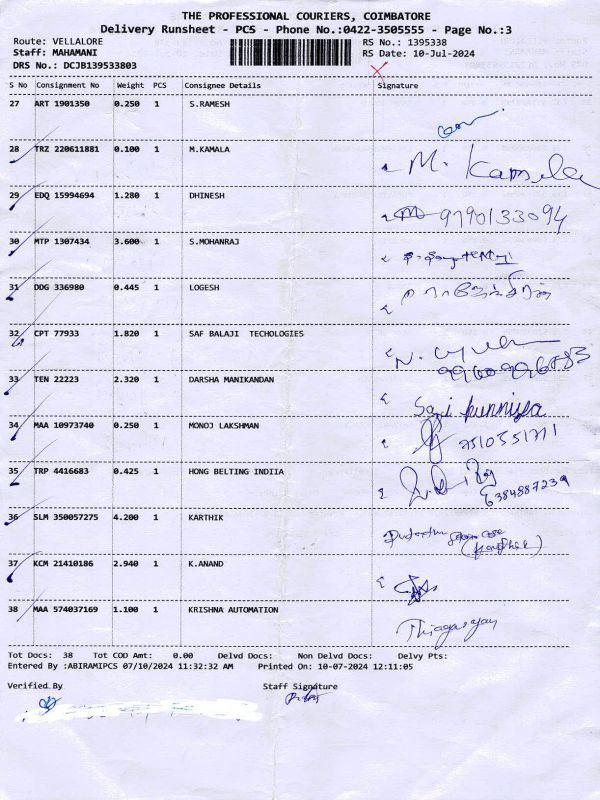 THE PROFESSIONAL COURIERS, COIMBATORE
Delivery Runsheet - PCS - Phone No.:0422-3505555 - Page No.:3
Route: VELLALORE RS No.: 1395338
Staff: MAHAMANI RS Date: 10-Jul-2024
DRS No.: DCJB139533803
S No Consignment No Weight PCS Consignee Details Signature
27 ART 1901350 0.250 1 S.RAMESH
28 TRZ 220611881 0.100 1 M.KAMALA M. Kamala
29 EDQ 15994694 1.280 1 DHINESH 9790133094
30 MTP 1307434 3.600 1 S.MOHANRAJ
31 DDG 336980 0.445 1 LOGESH
32 CPT 77933 1.820 1 SAF BALAJI TECHOLOGIES
33 TEN 22223 2.320 1 DARSHA MANIKANDAN
34 MAA 10973740 0.250 1 MONOJ LAKSHMAN
35 TRP 4416683 0.425 1 HONG BELTING INDIIA 6384887239
36 SLM 350057275 4.200 1 KARTHIK
37 KCM 21410186 2.940 1 K.ANAND
38 MAA 574037169 1.100 1 KRISHNA AUTOMATION Thiagarajan
Tot Docs: 38 Tot COD Amt: 0.00 Delvd Docs: Non Delvd Docs: Delvy Pts:
Entered By :ABIRAMIPCS 07/10/2024 11:32:32 AM Printed On: 10-07-2024 12:11:05
Verified By Staff Signature